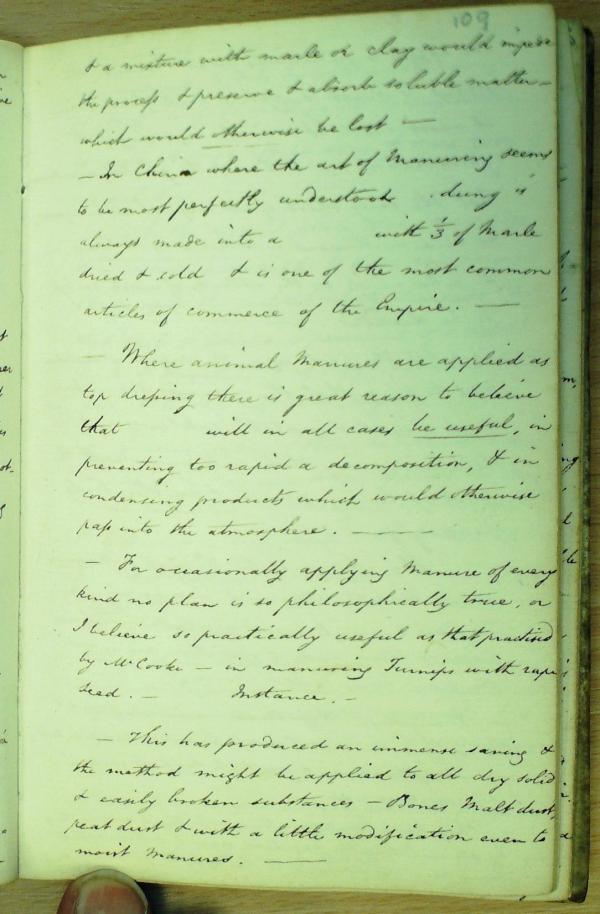 109
& a mixture with marle or clay would impede
the process & preserve & absorb soluble matter -
which would otherwise be lost —
- In China where the art of Manuring seems
to be most perfectly understood . dung is
always made into a with 1/3 of Marle
dried & sold & is one of the most common
articles of commerce of the Empire. —
- Where animal Manures are applied as
top dressing there is great reason to believe
that will in all cases be useful, in
preventing too rapid a decomposition, & in
condensing products which would otherwise
pass into the atmosphere. —
- For occasionally applying Manure of every
kind no plan is so philosophically true, or
I believe so practically useful as that practised
by Mr Cooke — in manuring Turnips with rape
seed. — Instance. -
- This has produced an immense saving &
the method might be applied to all dry solid
& easily broken substances — Bones Malt dust,
peat dust & with a little modification even to
moist Manures. —